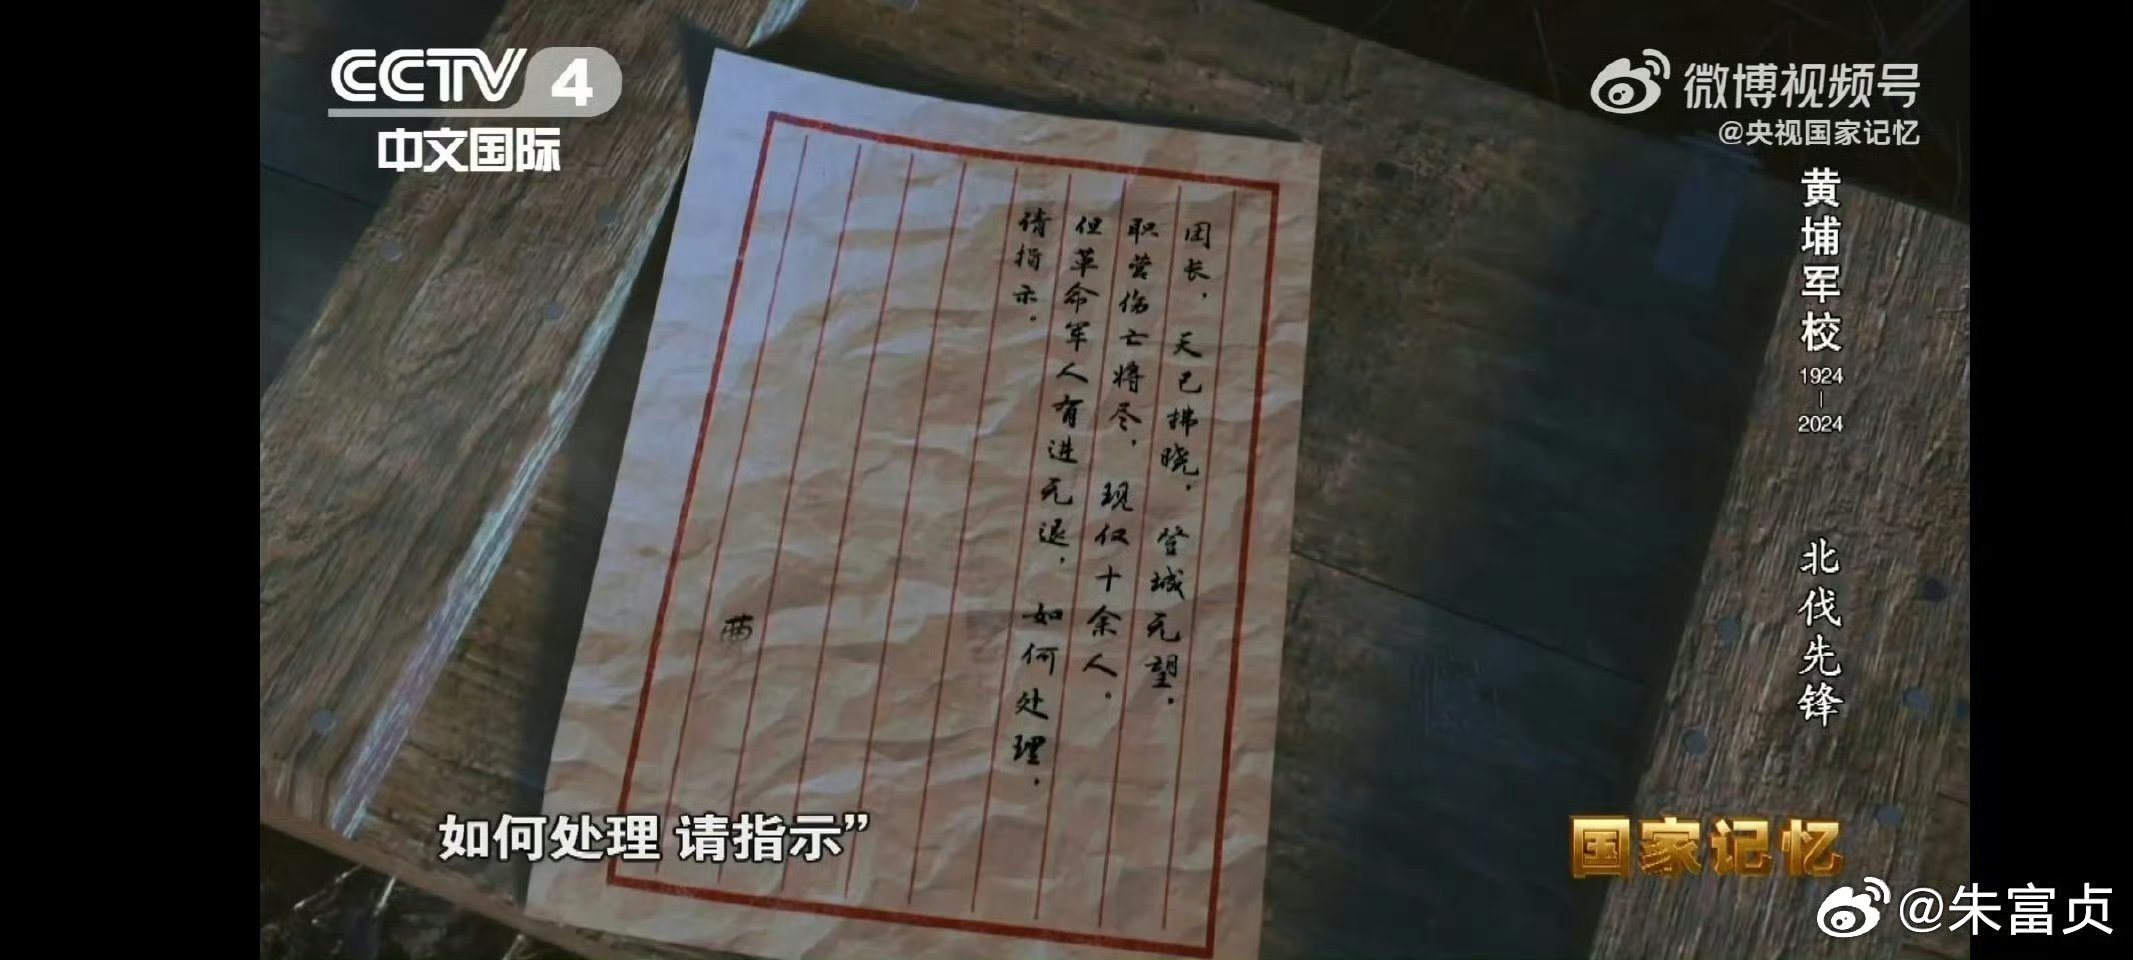 CCTV 4
中文国际
微博视频号
@央视国家记忆
黄埔军校
1924
|
2024
北伐先锋
团长，天已拂晓，登城无望，
职营伤亡将尽，现仅十余人。
但革命军人有进无退，如何处理，
请指示。
曹
如何处理 请指示”
国家记忆
@朱富贞